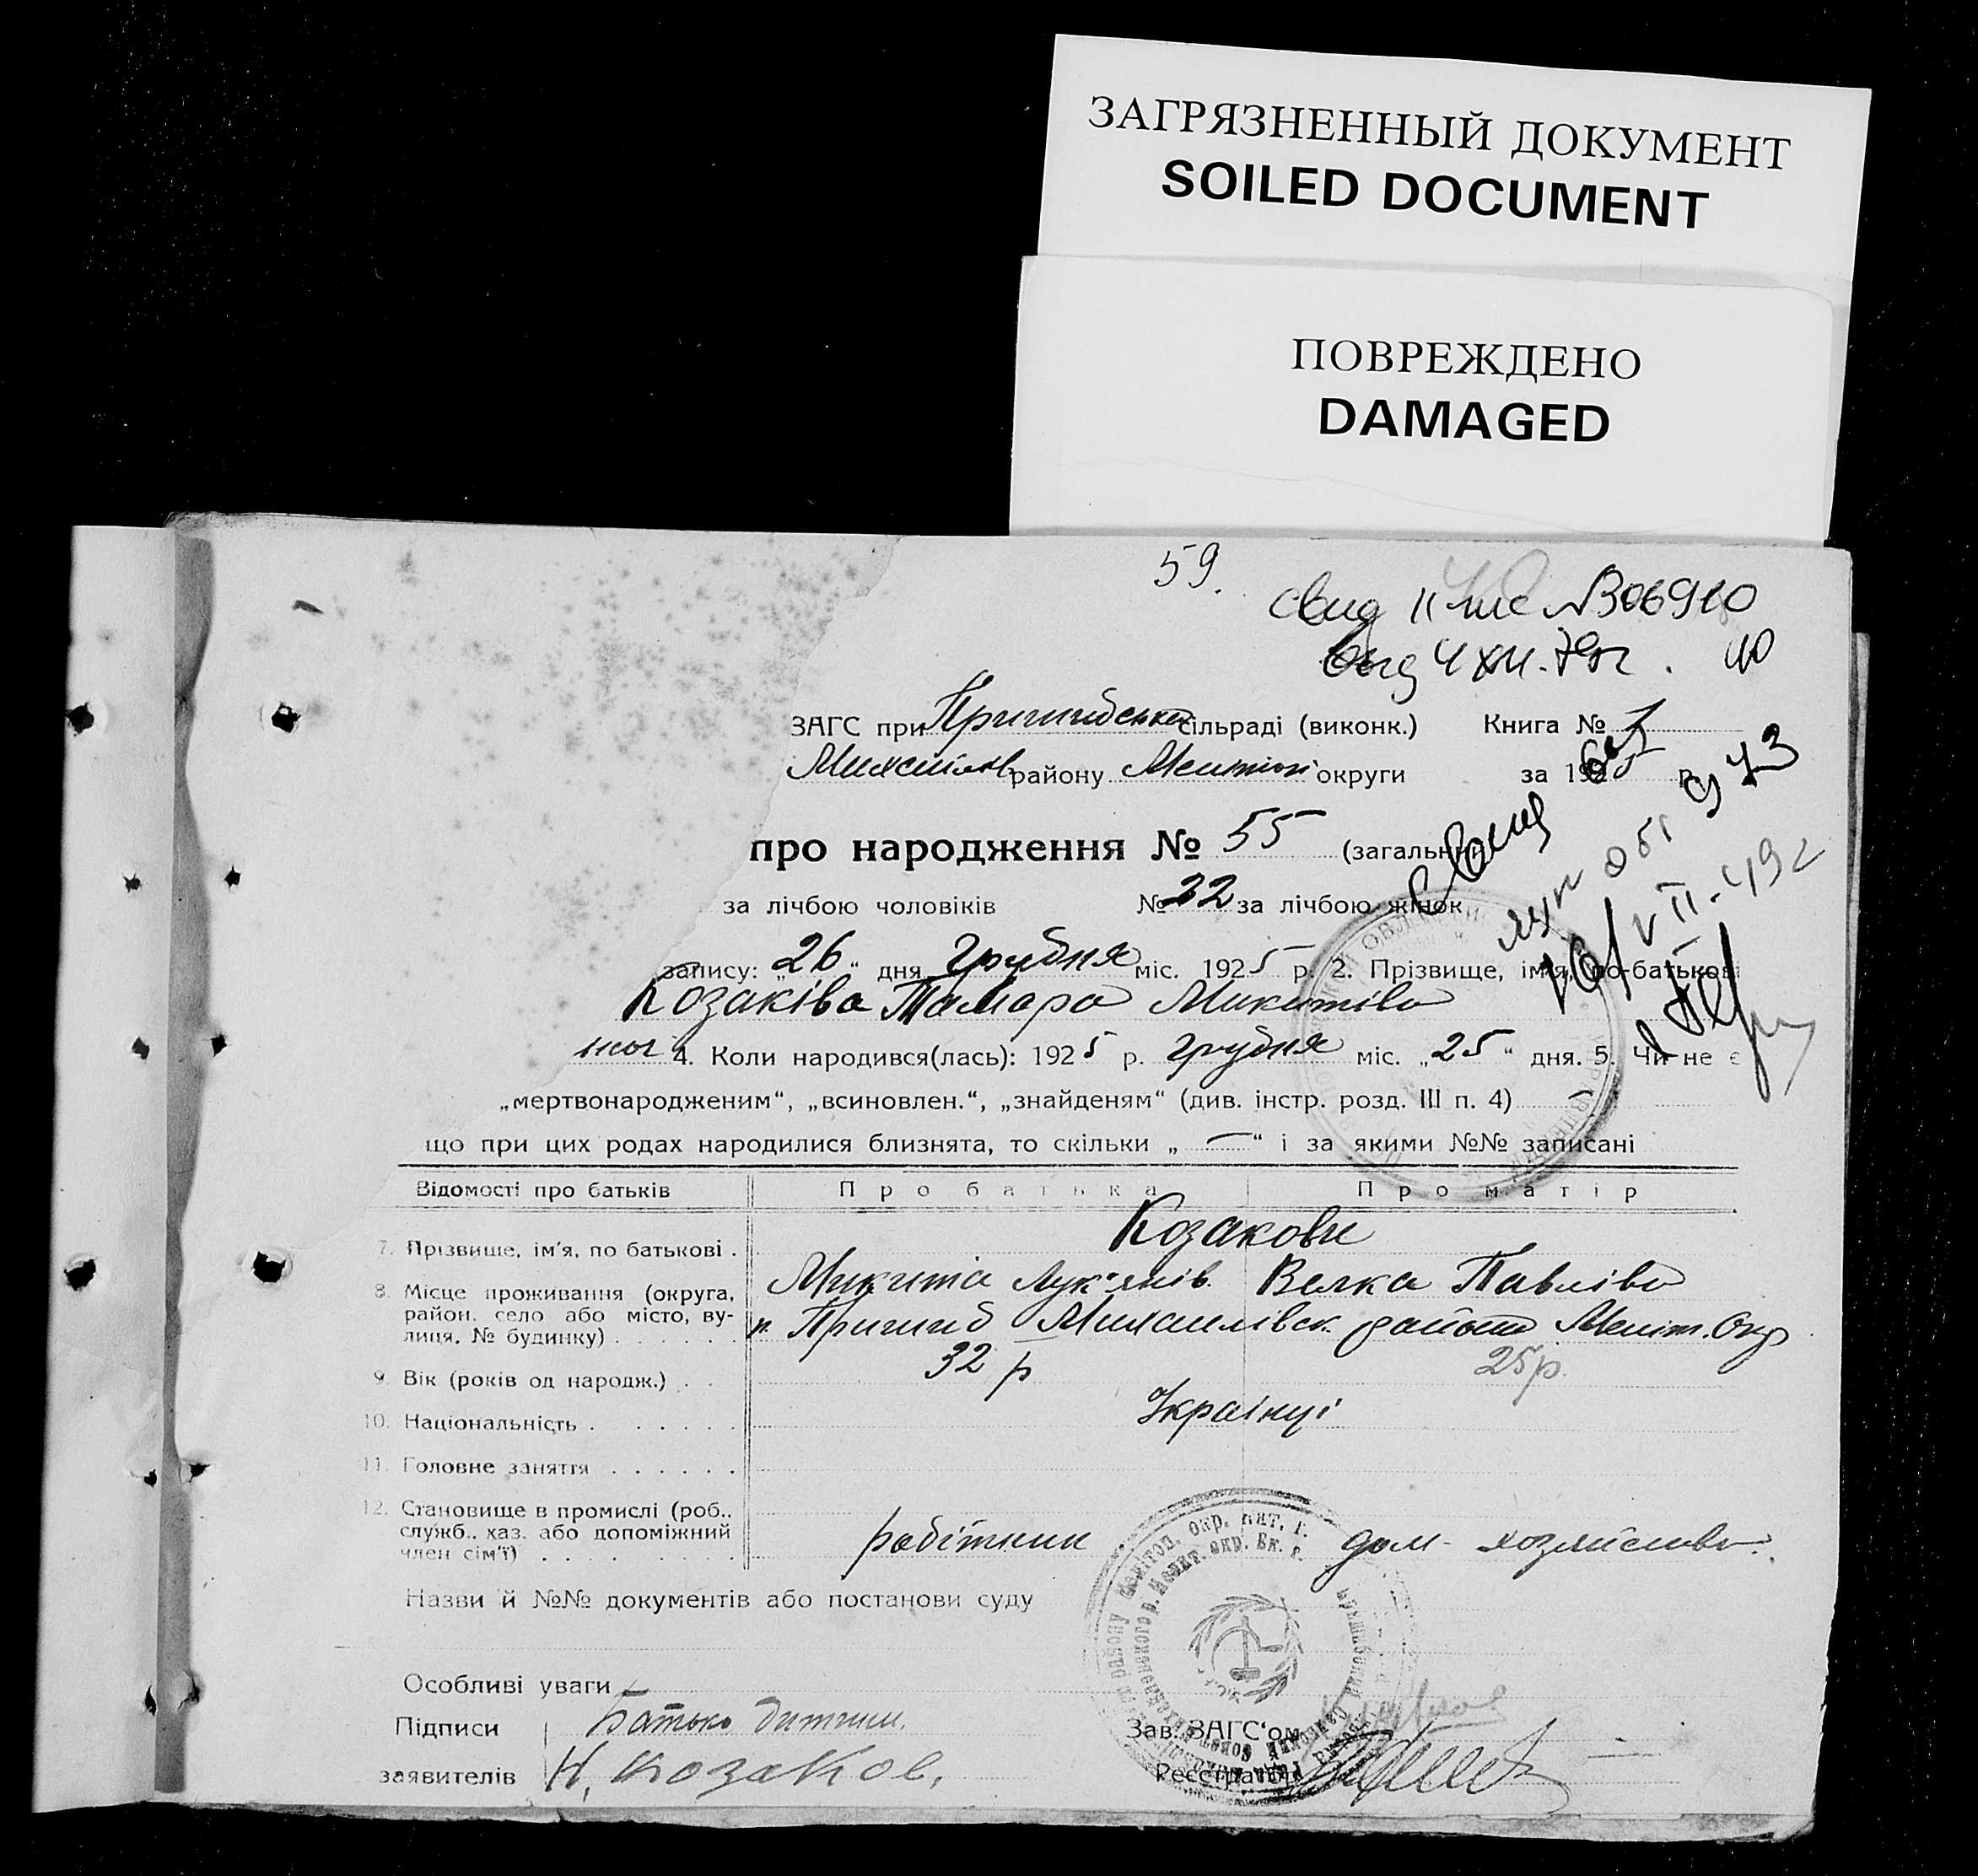 ЗАГРЯЗНЕННЫЙ ДОКУМЕНТ
SOILED DOCUMENT
ПОВРЕЖДЕНО
DAMAGED
59.
свид II №06910
выд 4 XII.
ЗАГС при Пришибській сільраді (виконк.) Книга № 1
Михайлів району Мелітоп округи за 1925 р.
про народження № 55 (загальний
за лічбою чоловіків № 22 за лічбою жінок
запису: „26“ дня грудня міс. 1925 р. 2. Прізвище, ім'я, по-батькові
Козаківа Тамара Микитіва
жіноч 4. Коли народився(лась): 1925 р. грудня міс. „25“ дня. 5. Чи не є
„мертвонародженим“, „всиновлен.“, „знайденям“ (див. інстр. розд. III п. 4) —
що при цих родах народилися близнята, то скільки „—“ і за якими №№ записані
Відомості про батьків Про батька Про матір
7. Прізвище, ім'я, по батькові .
Козакови
Микита Лук'янів. Павліва
8. Місце проживання (округа,
район, село або місто, ву-
лиця, № будинку)
п. Пришиб Михайлівськ. району Меліт. Окр
9. Вік (років од народж.) . . 32 р 25 р.
10. Національність . Українці
11. Головне заняття
12. Становище в промислі (роб.,
служб., хаз. або допоміжний
член сім'ї) робітник дом- хозяйство.
Назви й №№ документів або постанови суду
Особливі уваги
Підписи Батько дитини.
заявителів Н. Козаков.
Зав. ЗАГС'ом
Реєстратор